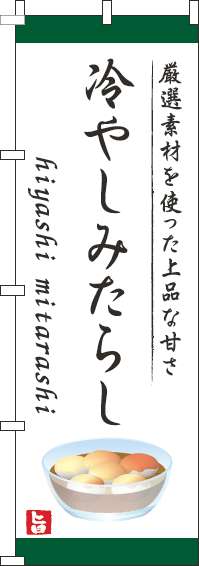 厳選素材を使った上品な甘さ
冷やしみたらし
hiyashi mitarashi
旨